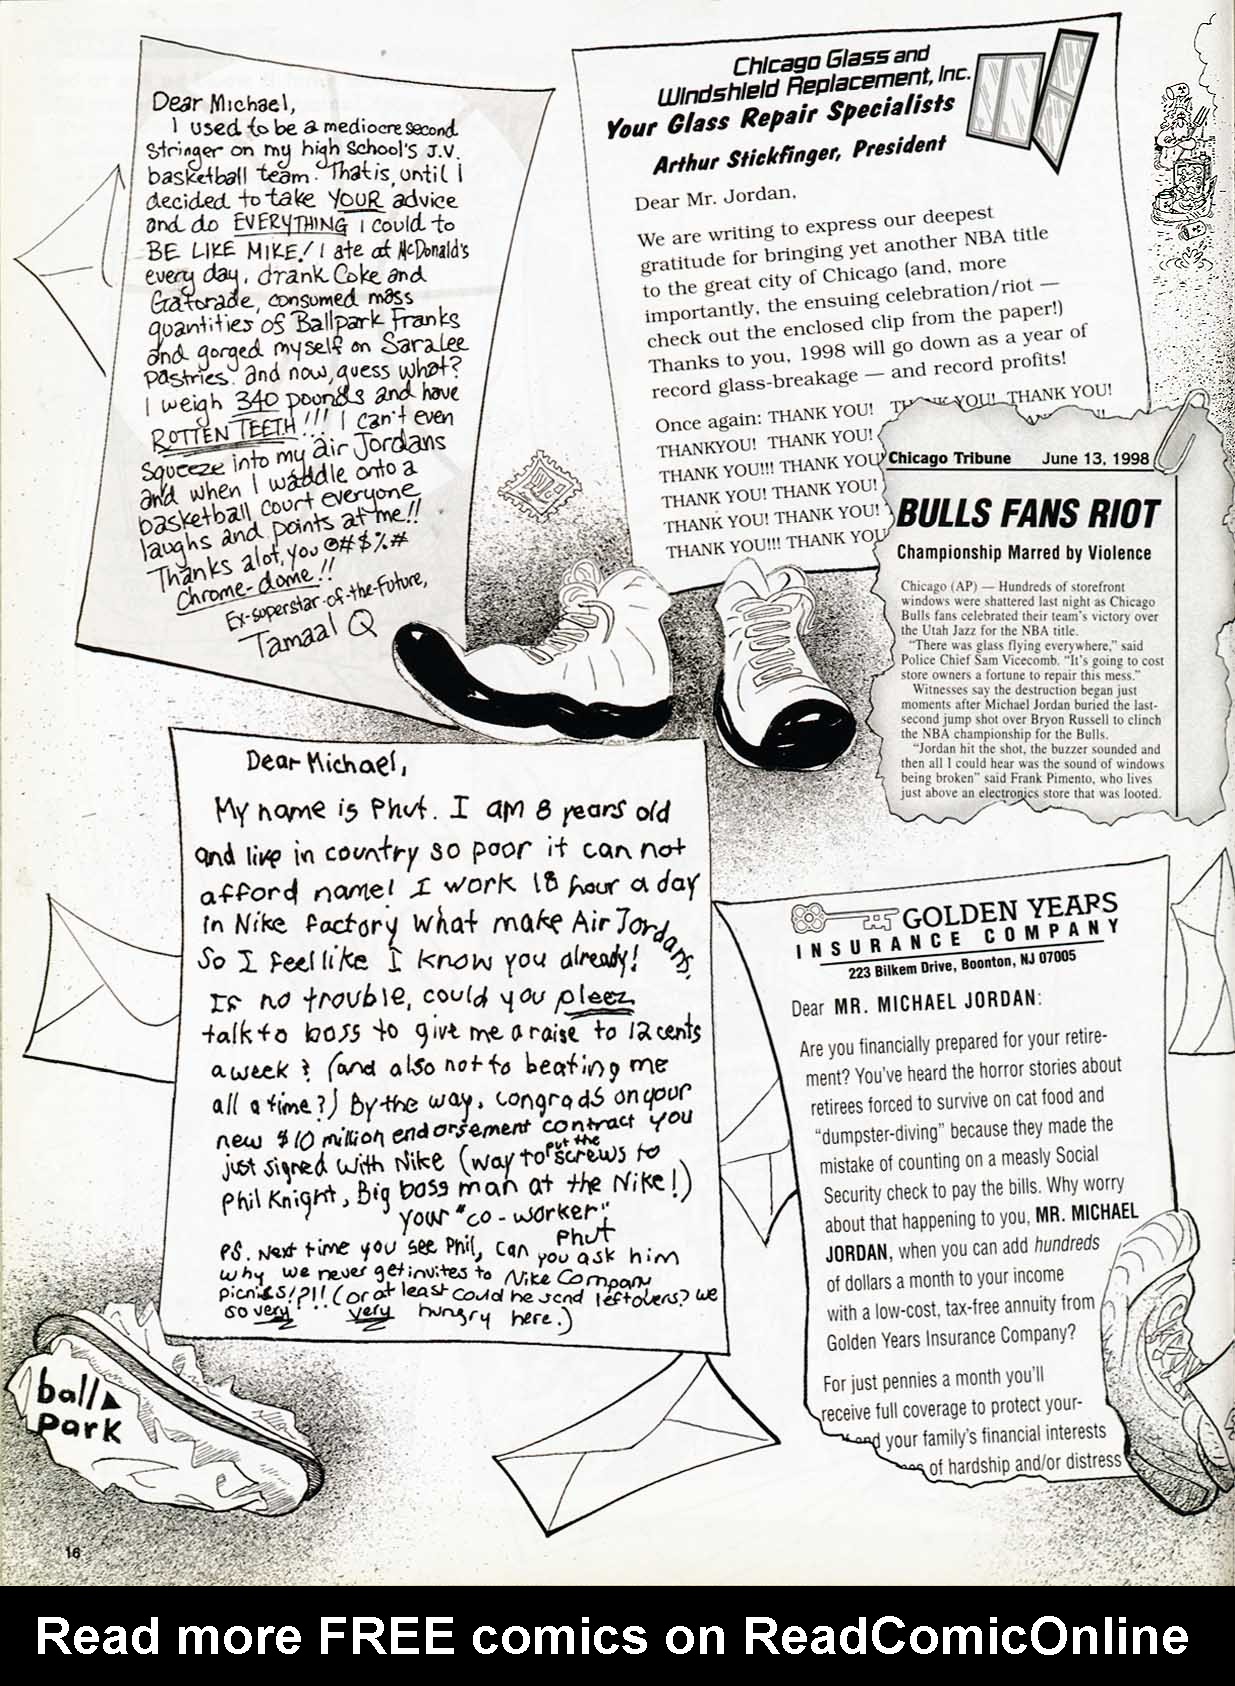 Dear Michael,
I used to be a mediocre second
stringer on my high school's J.V.
basketball team. That is, until I
decided to take YOUR advice
and do EVERYTHING I could to
BE LIKE MIKE! I ate at McDonald's
every day, drank Coke and
Gatorade, consumed mass
quantities of Ballpark Franks
and gorged myself on Saralee
pastries. and now, guess what?
I weigh 340 pounds and have
ROTTEN TEETH!!! I can't even
squeeze into my air Jordans
and when I waddle onto a
basketball court everyone
laughs and points at me!!
Thanks alot, you @#$%#
Chrome-dome!!
Ex-superstar-of-the-future,
Tamaal Q
Chicago Glass and
Windshield Replacement, Inc.
Your Glass Repair Specialists
Arthur Stickfinger, President
Dear Mr. Jordan,
We are writing to express our deepest
gratitude for bringing yet another NBA title
to the great city of Chicago (and, more
importantly, the ensuing celebration/riot —
check out the enclosed clip from the paper!)
Thanks to you, 1998 will go down as a year of
record glass-breakage — and record profits!
Once again: THANK YOU! THANK YOU! THANK YOU!
THANKYOU! THANK YOU!
THANK YOU!!! THANK YOU
THANK YOU! THANK YOU!
THANK YOU! THANK YOU!
THANK YOU!!! THANK YOU
Chicago Tribune June 13, 1998
BULLS FANS RIOT
Championship Marred by Violence
Chicago (AP) — Hundreds of storefront
windows were shattered last night as Chicago
Bulls fans celebrated their team's victory over
the Utah Jazz for the NBA title.
"There was glass flying everywhere," said
Police Chief Sam Vicecomb. "It's going to cost
store owners a fortune to repair this mess."
Witnesses say the destruction began just
moments after Michael Jordan buried the last-
second jump shot over Bryon Russell to clinch
the NBA championship for the Bulls.
"Jordan hit the shot, the buzzer sounded and
then all I could hear was the sound of windows
being broken" said Frank Pimento, who lives
just above an electronics store that was looted.
Dear Michael,
My name is Phut. I am 8 years old
and live in country so poor it can not
afford name! I work 18 hour a day
in Nike factory what make Air Jordans.
So I feel like I know you already!
If no trouble, could you pleez
talk to boss to give me a raise to 12 cents
a week? (and also not to beating me
all a time?) By the way, congrads on your
new $10 million endorsement contract you
just signed with Nike (way to put the screws to
Phil Knight, Big boss man at the Nike!)
your "co-worker"
Phut
PS. Next time you see Phil, can you ask him
why we never get invites to Nike Company
picnics!?!!! (or at least could he send leftovers? We
so very very hungry here.)
GOLDEN YEARS
INSURANCE COMPANY
223 Bilkem Drive, Boonton, NJ 07005
Dear MR. MICHAEL JORDAN:
Are you financially prepared for your retire-
ment? You've heard the horror stories about
retirees forced to survive on cat food and
"dumpster-diving" because they made the
mistake of counting on a measly Social
Security check to pay the bills. Why worry
about that happening to you, MR. MICHAEL
JORDAN, when you can add hundreds
of dollars a month to your income
with a low-cost, tax-free annuity from
Golden Years Insurance Company?
For just pennies a month you'll
receive full coverage to protect your-
and your family's financial interests
of hardship and/or distress
ball
park
16
Read more FREE comics on ReadComicOnline